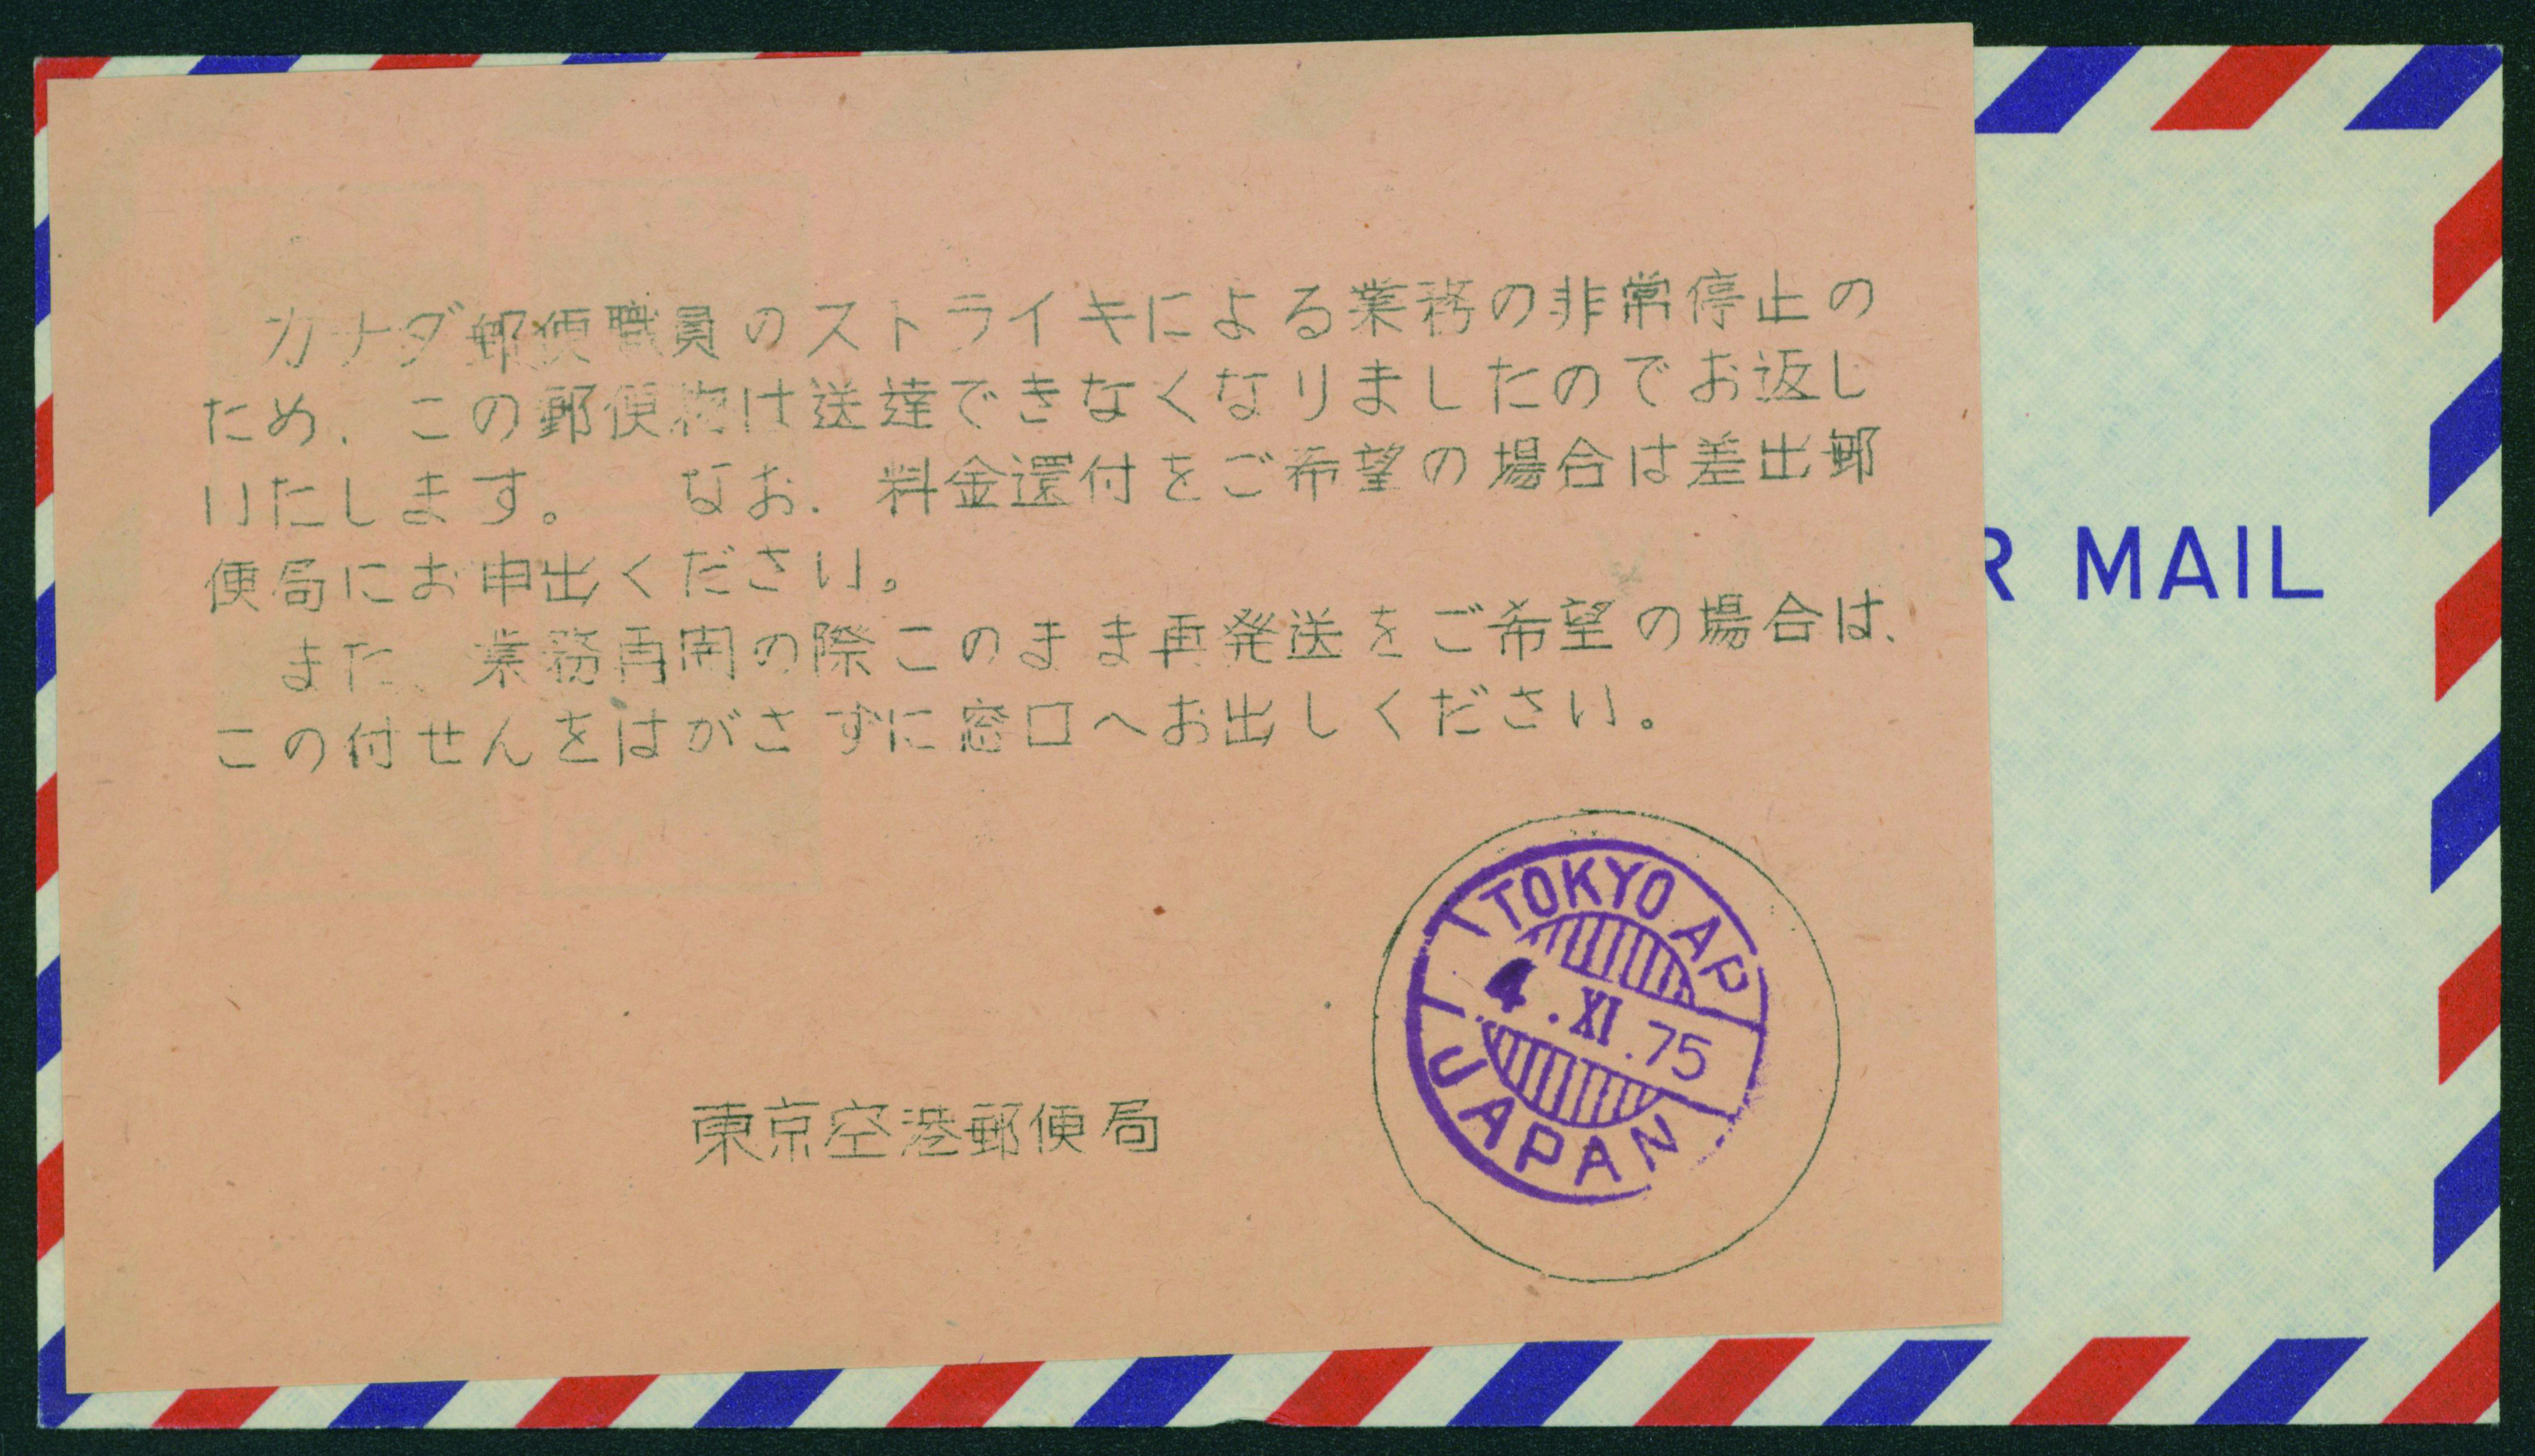 カナダ郵便職員のストライキによる業務の非常停止の
ため、この郵便物は送達できなくなりましたのでお返し
いたします。　なお、料金還付をご希望の場合は差出郵
便局にお申出ください。
また、業務再開の際このまま再発送をご希望の場合は、
この付せんをはがさずに窓口へお出しください。
R MAIL
TOKYO AP
4.XI.75
JAPAN
東京空港郵便局